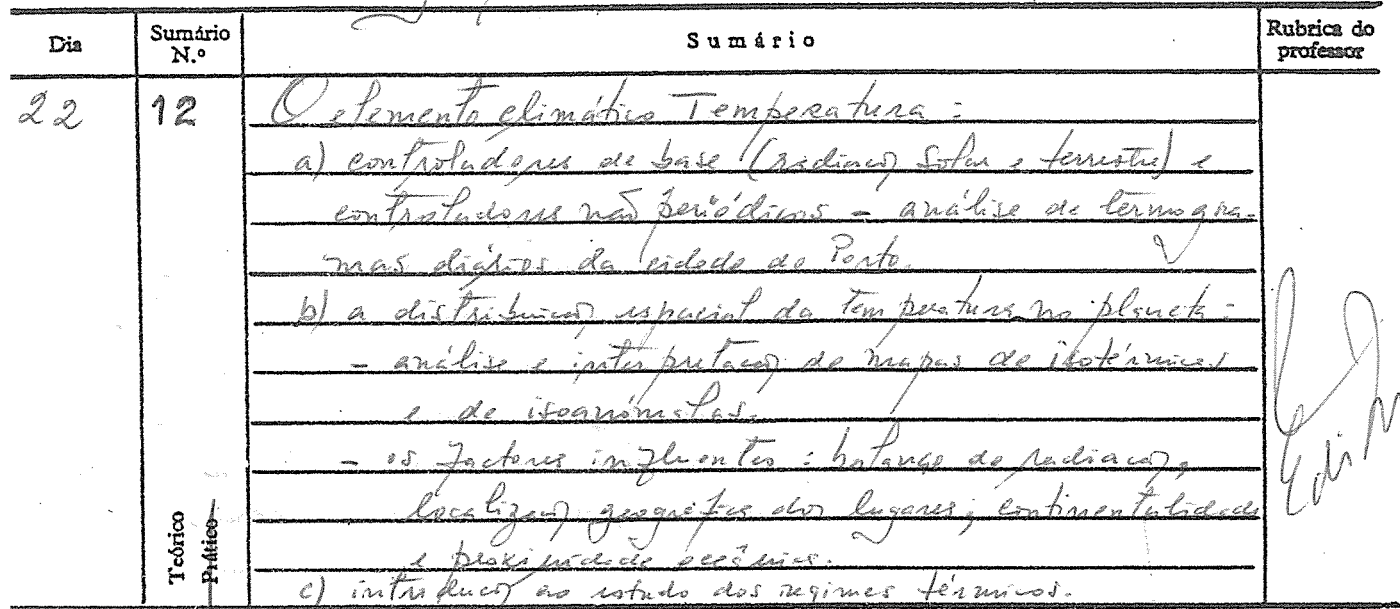 Dia
Sumário N.º
Sumário
Rubrica do professor
22
12
O elemento climático Temperatura :
a) controladores de base (radiação solar e terrestre) e
controladores não periódicos - análise de termogra-
mas diários da cidade do Porto.
b) a distribuição espacial da temperatura no planeta :
- análise e interpretação de mapas de isotérmicas
e de isoanómalas.
- os factores influentes : balanço de radiação,
localização geográfica dos lugares, continentalidade
e proximidade oceânica.
c) introdução ao estudo dos regimes térmicos.
Teórico
Prático